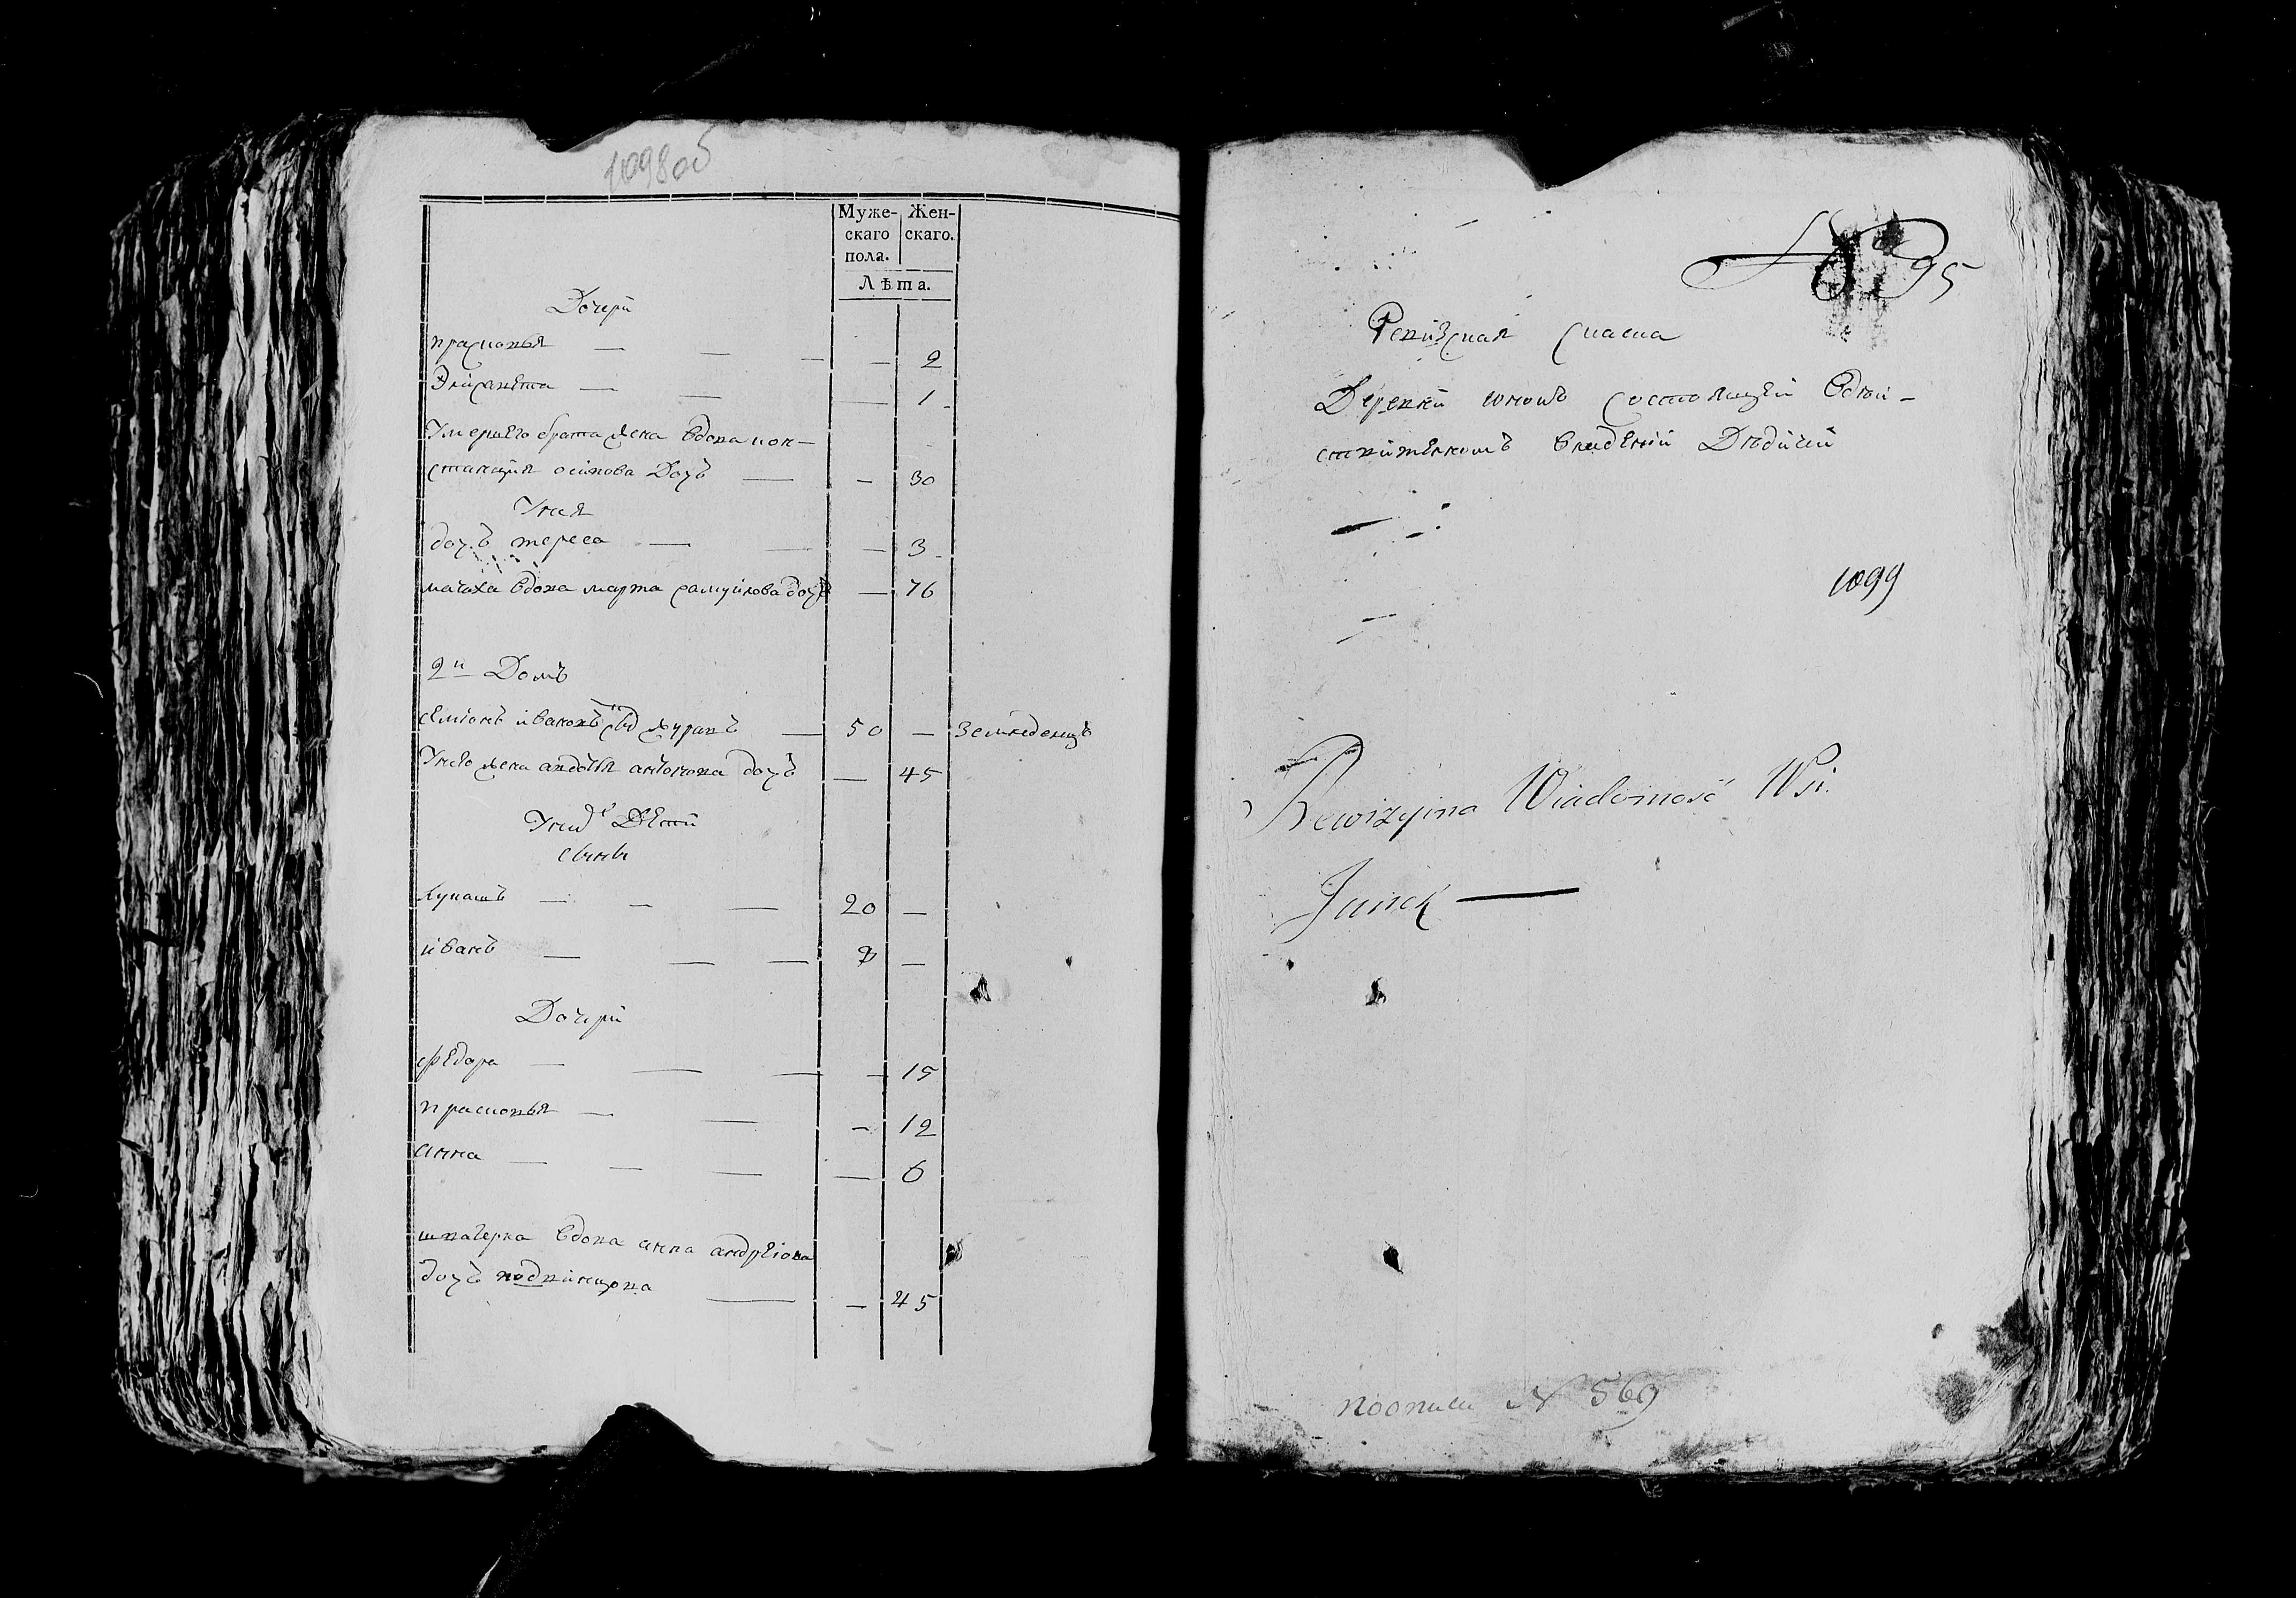 1098об
Муже-
скаго
пола.
Жен-
скаго.
Лѣта.
Дочери
прасковья — — — — 2
Элизавета — — — 1
Умершего брата жена вдова кон-
станция осипова Дочь — — 30
У нея
дочь тереса — — — 3
мачаха вдова марта самуилова дочь — 76
2й Домъ
семіонъ ивановъ сы журавъ — 50 —
земледелецъ
У него жена авдотя антонова дочь — 45
У них Дети
сыны
лукашъ — — — 20 —
иванъ — — — 9 —
Дочери
федора — — — — 15
прасковья — — — 12
анна — — — — 6
швагерка вдова анна андреіова
дочь — — 45
№ 95
Ревизская Сказка
Деревни юнокъ состоящей Вдлои-
владении Дедичей
1099
Rewizyina Wiadomość Wsi.
Junek —
по описи № 569